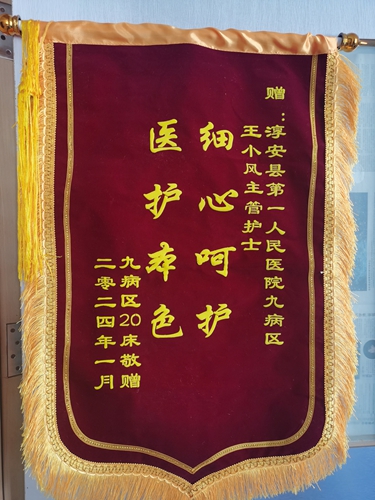 赠：淳安县第一人民医院九病区
王小风主管护士
细心呵护
医护本色
九病区20床敬赠
二零二四年一月